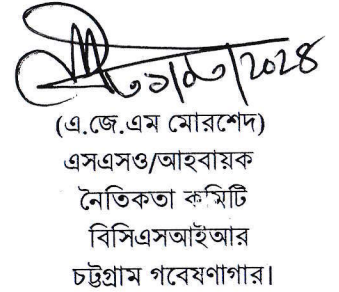 (এ.জে.এম মোরশেদ)
এসএসও/আহবায়ক
নৈতিকতা কমিটি
বিসিএসআইআর
চট্টগ্রাম গবেষণাগার।